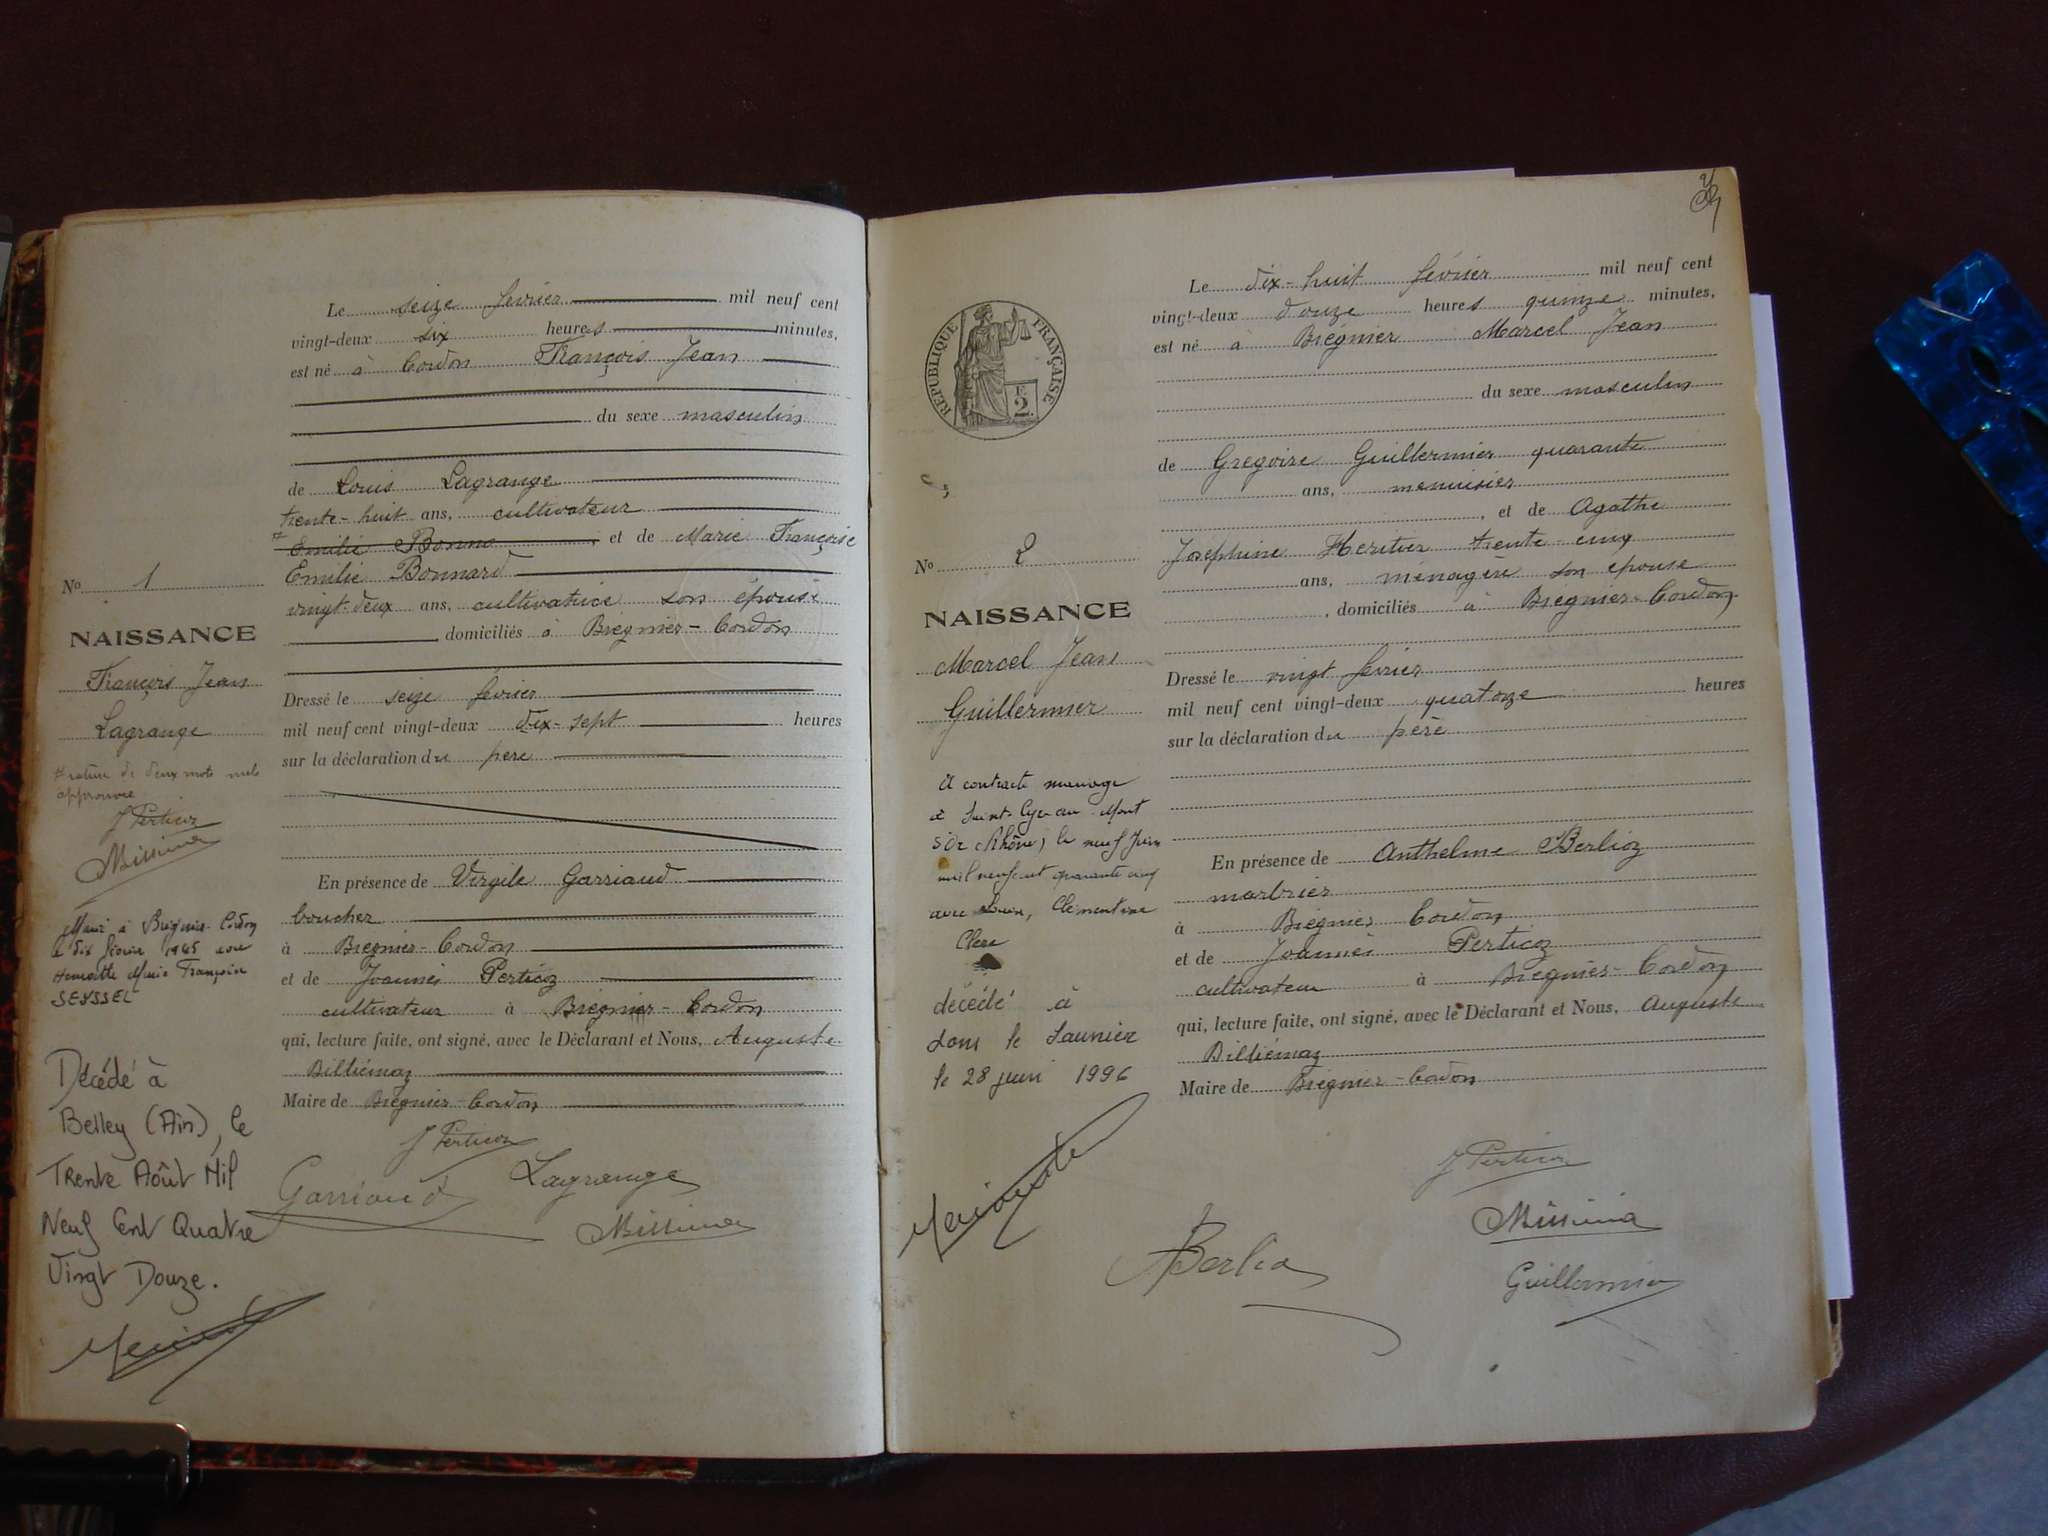 Le seize fevrier mil neuf cent
vingt-deux six heures minutes,
est né à Cordon François Jean
du sexe masculin
de Louis Lagrange
trente-huit ans, cultivateur
# Emilie Bonno, et de Marie Françoise
Emilie Bonnard
vingt-deux ans, cultivatrice son épouse
domiciliés à Brégnier-Cordon
Dressé le seize fevrier
mil neuf cent vingt-deux dix-sept heures
sur la déclaration du père
En présence de Virgile Garriaud
boucher
à Brégnier-Cordon
et de Joannès Perticoz
cultivateur à Brégnier-Cordon
qui, lecture faite, ont signé, avec le Déclarant et Nous, Auguste
Billiémaz
Maire de Brégnier-Cordon
J Perticoz
Garriaud Lagrange
No 1
NAISSANCE
François Jean
Lagrange
# rature de deux mots nuls
approuvée
J Perticoz
Marié à Brégnier-Cordon
le dix février 1945 avec
Henriette Marie Françoise
SEYSSEL
Décédé à
Belley (Ain), le
Trente Août Mil
Neuf Cent Quatre
Vingt Douze.
Le dix-huit février mil neuf cent
vingt-deux douze heures quinze minutes,
est né à Brégnier Marcel Jean
du sexe masculin
de Grégoire Guillermier quarante
ans, menuisier
, et de Agathe
Joséphine Heritier trente-cinq
ans, ménagère son épouse
, domiciliés à Brégnier-Cordon
Dressé le vingt fevrier
mil neuf cent vingt-deux quatorze heures
sur la déclaration du père
En présence de Anthelme Berlioz
marbrier
à Brégnier Cordon
et de Joannès Perticoz
cultivateur à Brégnier-Cordon
qui, lecture faite, ont signé, avec le Déclarant et Nous, Auguste
Billiémaz
Maire de Brégnier-Cordon
J Perticoz
Guillermier
RÉPUBLIQUE FRANÇAISE
2
No 2
NAISSANCE
Marcel Jean
Guillermier
A contracté mariage
à Saint-Cyr-au-Mont
d'Or (Rhône) le neuf Juin
mil neuf cent quarante cinq
avec Clémentine
décédé à
Lons le Saunier
le 28 juin 1996